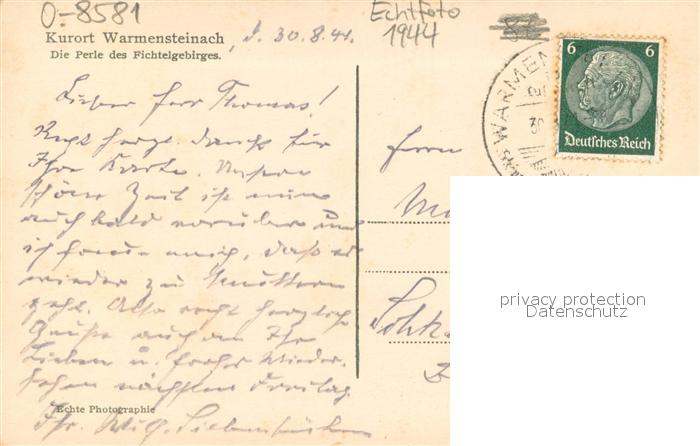 0-8581
Echtfoto
1944
Kurort Warmensteinach, d. 30.8.41.
Die Perle des Fichtelgebirges.
6 6
Deutsches Reich
WARMEN
30
Lieber Herr Thomas!
Recht herzl. Dank für
Ihre Karte. Unsere
schöne Zeit ist nun
auch bald vorüber und
ich freue mich, daß es
wieder zu Muttern
geht. Also recht herzliche
Grüße auch an Ihre
Lieben u. frohes Wieder-
sehen nächsten Freitag
Ihr
Herrn
Echte Photographie
privacy protection
Datenschutz